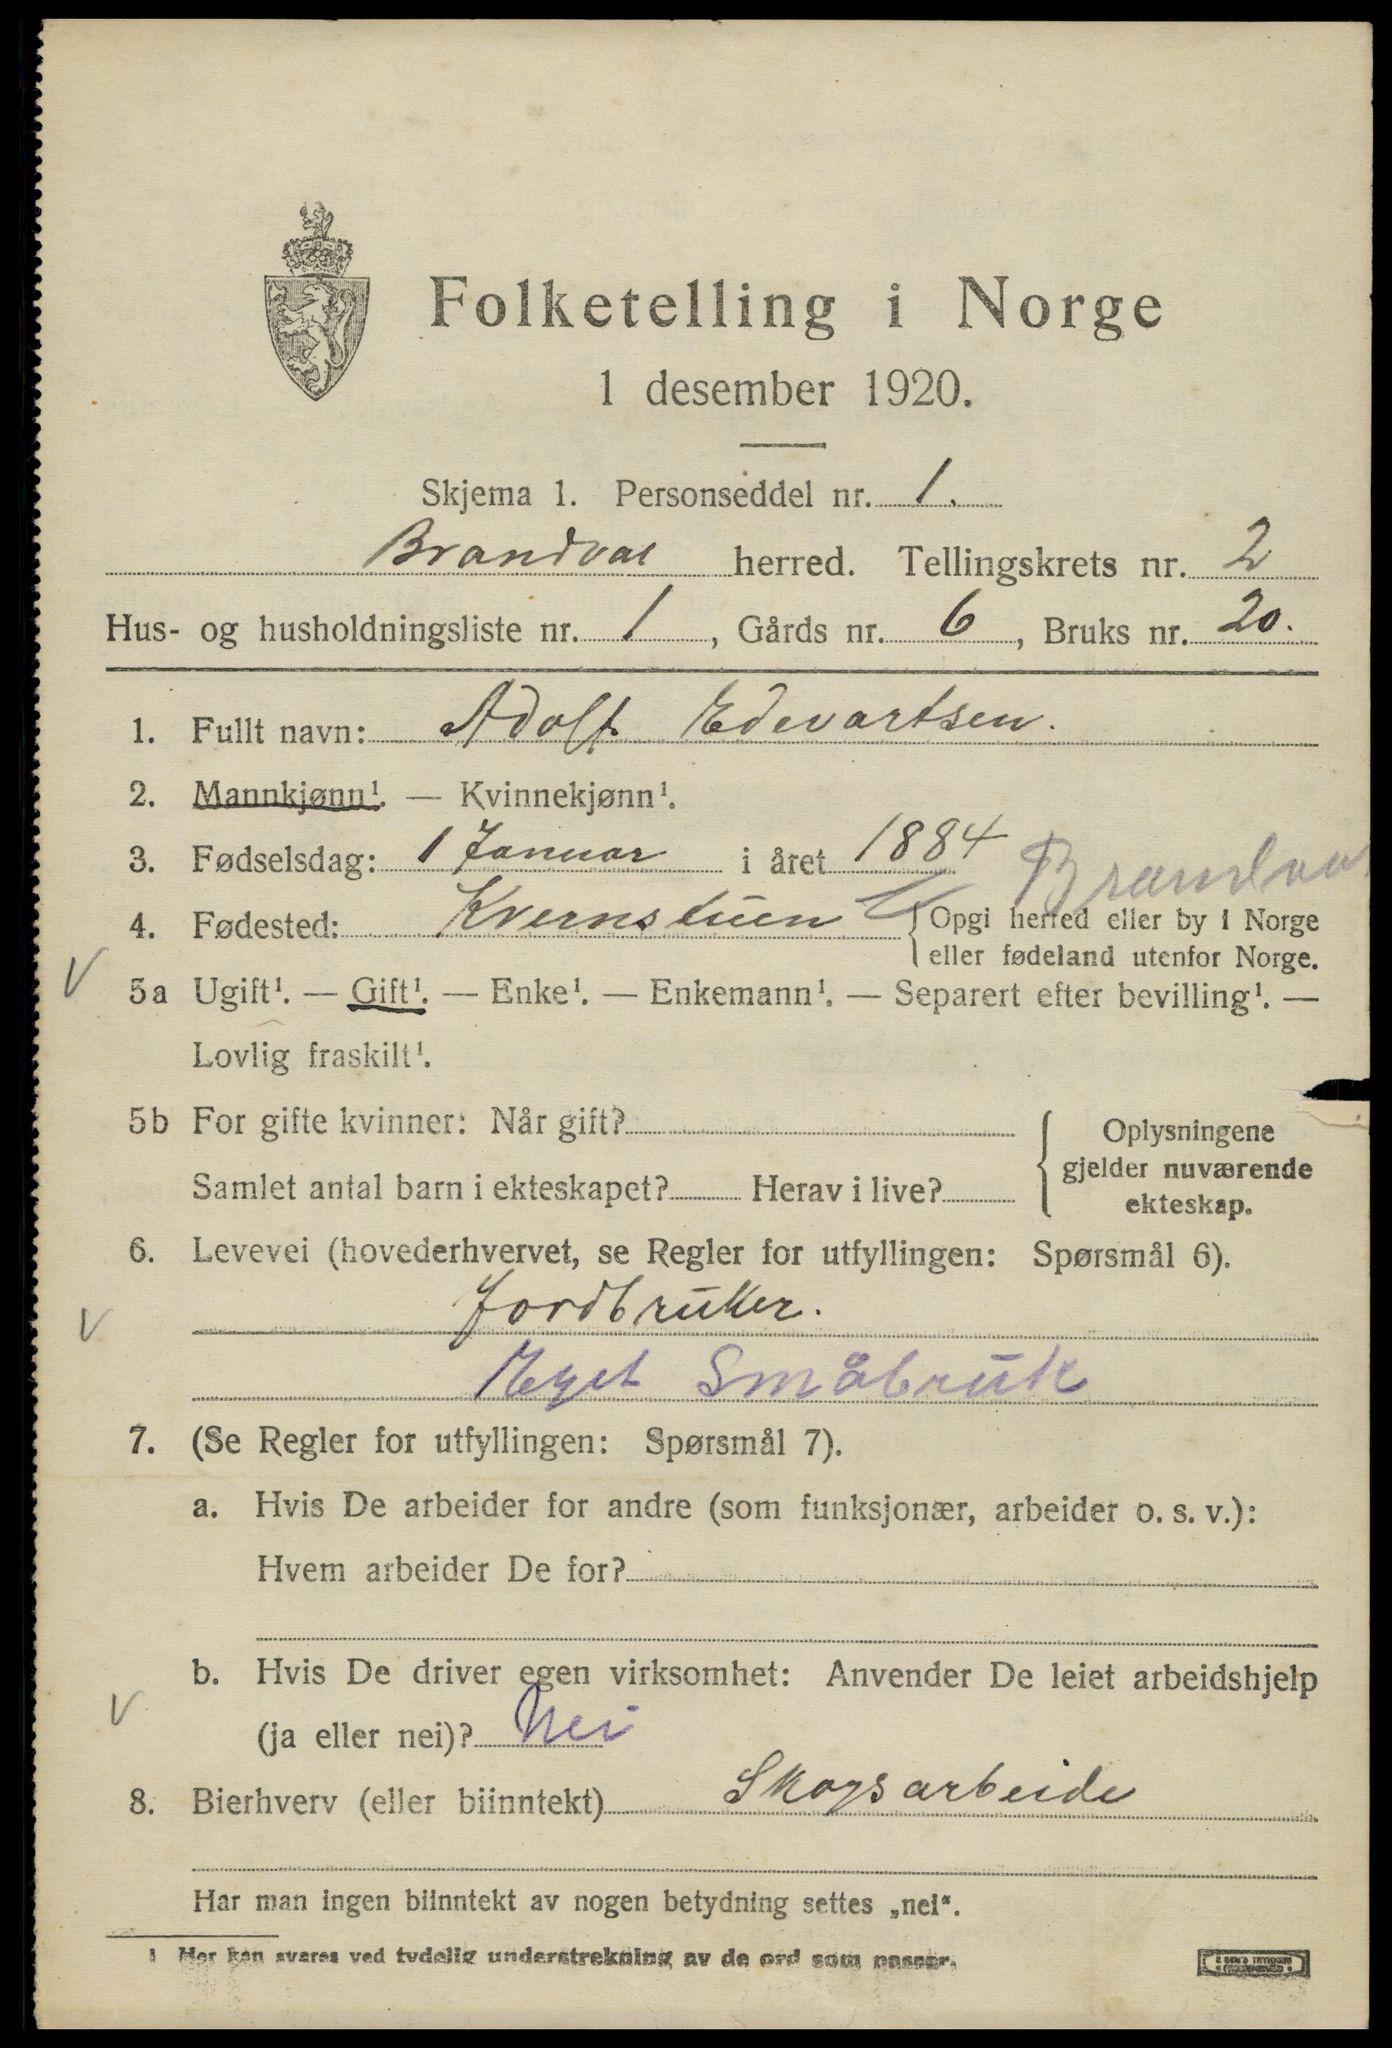 Folketelling i Norge
1 desember 1920.
Skjema 1. Personseddel nr. 1.
Brandval herred. Tellingskrets nr. 2
Hus- og husholdningsliste nr. 1, Gårds nr. 6, Bruks nr. 20.
1. Fullt navn: Adolf Edevartsen.
2. Mannkjønn¹. — Kvinnekjønn¹.
3. Fødselsdag: 1 Januar i året 1884
Brandval
4. Fødested: Kvernstuen { Opgi herred eller by i Norge
eller fødeland utenfor Norge.
5a Ugift¹. — Gift¹. — Enke¹. — Enkemann¹. — Separert efter bevilling¹. —
Lovlig fraskilt¹.
5b For gifte kvinner: Når gift?
Samlet antal barn i ekteskapet? Herav i live?
{ Oplysningene
gjelder nuværende
ekteskap.
6. Levevei (hovederhvervet, se Regler for utfyllingen: Spørsmål 6).
Jordbruker.
Eget Småbruk
7. (Se Regler for utfyllingen: Spørsmål 7).
a. Hvis De arbeider for andre (som funksjonær, arbeider o. s. v.):
Hvem arbeider De for?
b. Hvis De driver egen virksomhet: Anvender De leiet arbeidshjelp
(ja eller nei)? Nei
8. Bierhverv (eller biinntekt) Skogsarbeide
Har man ingen biinntekt av nogen betydning settes „nei“.
1 Her kan svares ved tydelig understrekning av de ord som passer.